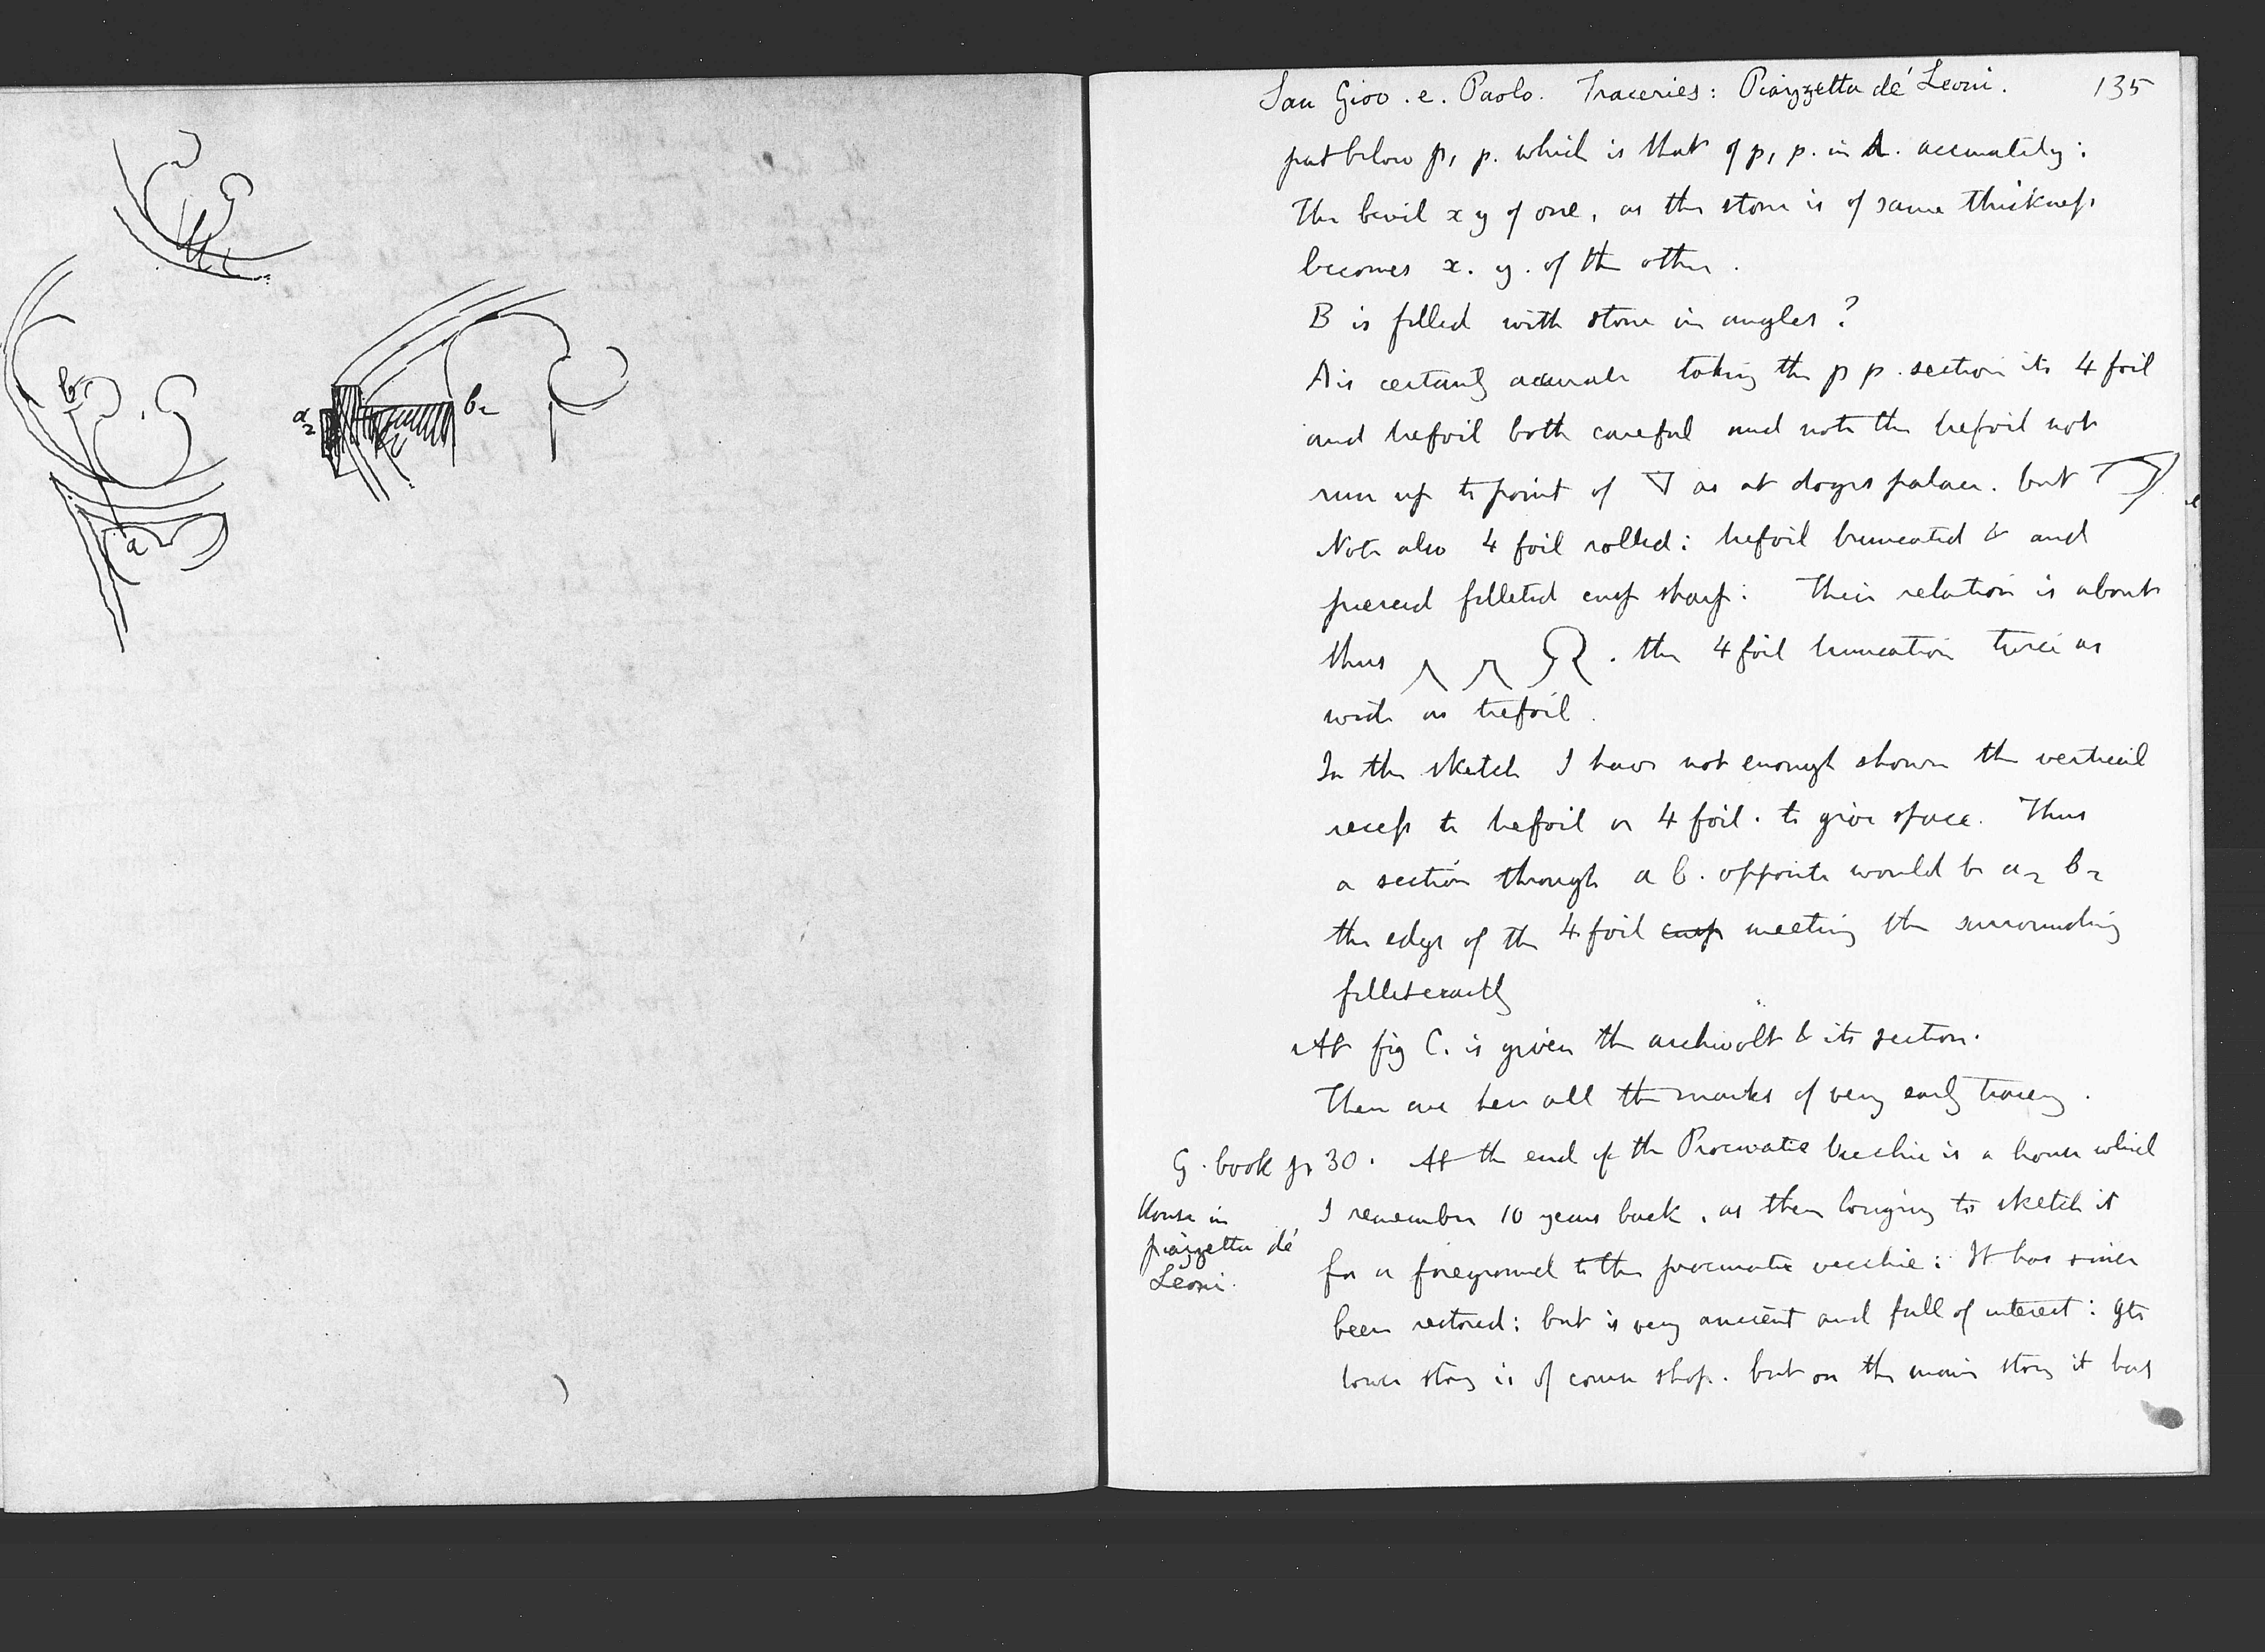 b
a
a2
b2
San Giov. e. Paolo. Traceries: Piazzetta dé Leoni. 135
put below p, p. which is that of p, p. in A. accurately:
The bevil x y of one, as the stone is of same thickness
becomes x. y. of the other.
B is filled with stone in angles?
A is certainly accurate taking the p p. section its 4 foil
and trefoil both careful and note the trefoil not
run up to point of as at doges palace. but
Note also 4 foil rolled: trefoil truncated & and
pierced filleted cusp sharp: Their relation is about
thus . the 4 foil truncation twice as
wide as trefoil.
In the sketch I have not enough shown the vertical
recess to trefoil or 4 foil. to give space. Thus
a section through a b. opposite would be a2 b2
the edge of the 4 foil cusp meeting the surrounding
fillet exactly
At fig C. is given the archivolt & its section.
There are here all the marks of very early tracery.
G. book p 30. At the end of the Procuratie Vecchie is a house which
House in
piazzetta dé
Leoni.
I remember 10 years back, as then longing to sketch it
for a foreground to the procuratie vecchie: It has since
been restored: but is very ancient and full of interest: Its
lower story is of course shop. but on the main story it has